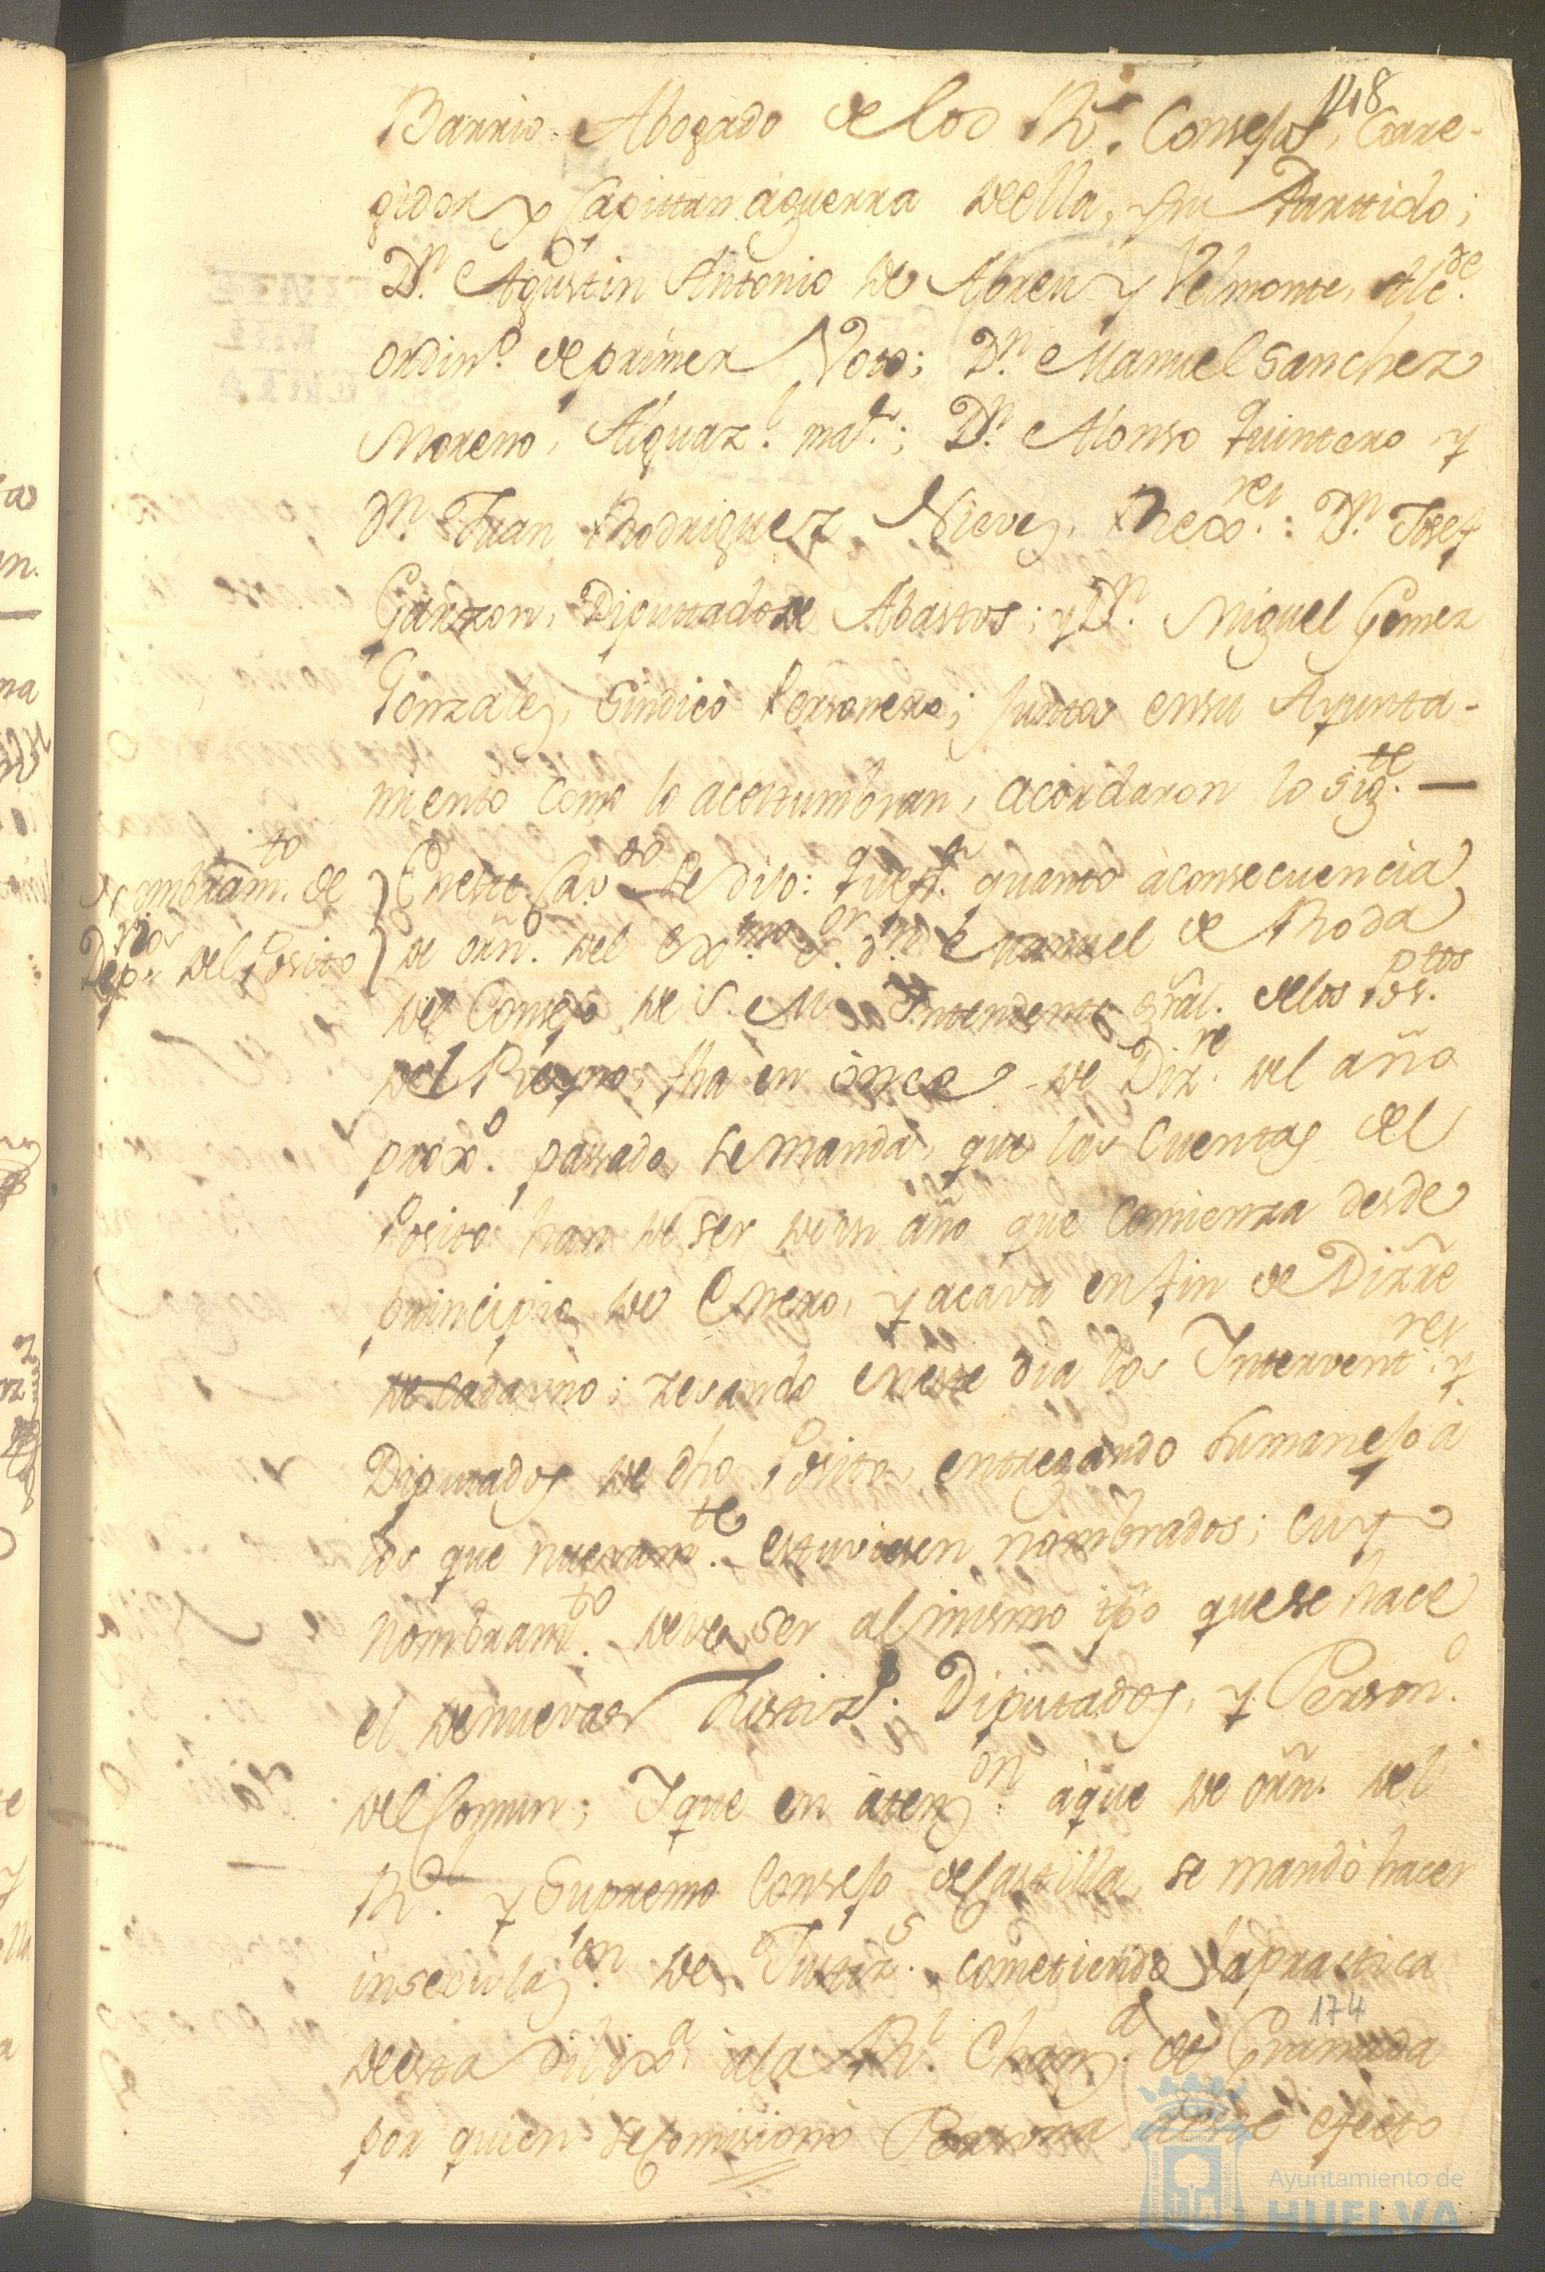 148
Barrio Abogado de los Rs. Consejos, Corre-
gidor y Capittan águerra deella, y su Parttido;
Dn. Agustin Antonio de Abreu y Velmonte, Alcde.
ordino. de primer Voto; Dn. Manuel Sanchez
Moreno, Alguazl. mar.; Dn. Alonso Quintero y
Dn. Juan Rodriguez Nieves, Rexres.: Dn. Josef
Garzon, Diputtado de Abastos; y Dn. Miguel Gomez
Gonzales, Sindico Personero; Juntos ensu Ayunta-
miento como lo acostumbran, acordaron lo sigte. —
Nombramto. de
Deposrios del Posito
Eneste Cavdo. Se dijo: Que pr. quanto áconsecuencia
de orñ. del Exmo. Sor. dn. Manuel de Rhoda
del Consejo de S. M. Intendente gral. delos Posptos.
del Reyno, fha en once de Dizre. del año
proxo. passado, Se manda, que las Cuentas del
Posito han de ser de un año que Comienza desde
principio de Enero, y acava enfin de Dizre
de cada uno; zesando eneste dia los Interventres. y
Diputados de dho Posito, entregando sumanejo á
los que nuevamte. estuviesen nombrados; cuyo
nombramto. deve ser al mismo tpo que se hace
el denuevas Justizs. Diputados, y Persono.
del Comun; Y que en átenzon. áque de orñ. del
Rl. y Supremo Consejo de Castilla, se mandó hacer
insaculazon. de Justizs. cometiendo la practica
deesta dilixa. ala Rl. Chanza. de Granada
174
por quien se Comisionó Persona áeste efecto
Ayuntamiento de
HUELVA